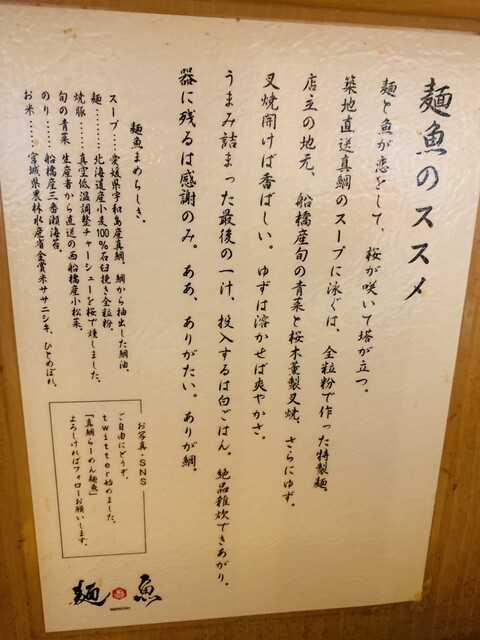 麺魚のススメ
麺と魚が恋をして、桜が咲いて塔が立つ。
築地直送真鯛のスープに泳ぐは、全粒粉で作った特製麺。
店主の地元、船橋産旬の青菜と桜木薫製叉焼、さらにゆず。
叉焼開けば香ばしい。ゆずは溶かせば爽やかさ。
うまみ詰まった最後の一汁、投入するは白ごはん。絶品雑炊できあがり。
器に残るは感謝のみ。ああ、ありがたい。ありが鯛。
麺魚まめちしき。
スープ……愛媛県宇和島産真鯛 鯛から抽出した鯛油。
麺………北海道産小麦100%石臼挽き全粒粉。
焼豚……真空低温調整チャーシューを桜で燻しました。
旬の青菜 生産者から直送の西船橋産小松菜。
のり……船橋産三番瀬海苔。
お米……宮城県農林水産省金賞米ササニシキ、ひとめぼれ。
お写真・SNS
ご自由にどうぞ。
twitter始めました。
『真鯛らーめん麺魚』
よろしければフォローお願いします。
麺魚